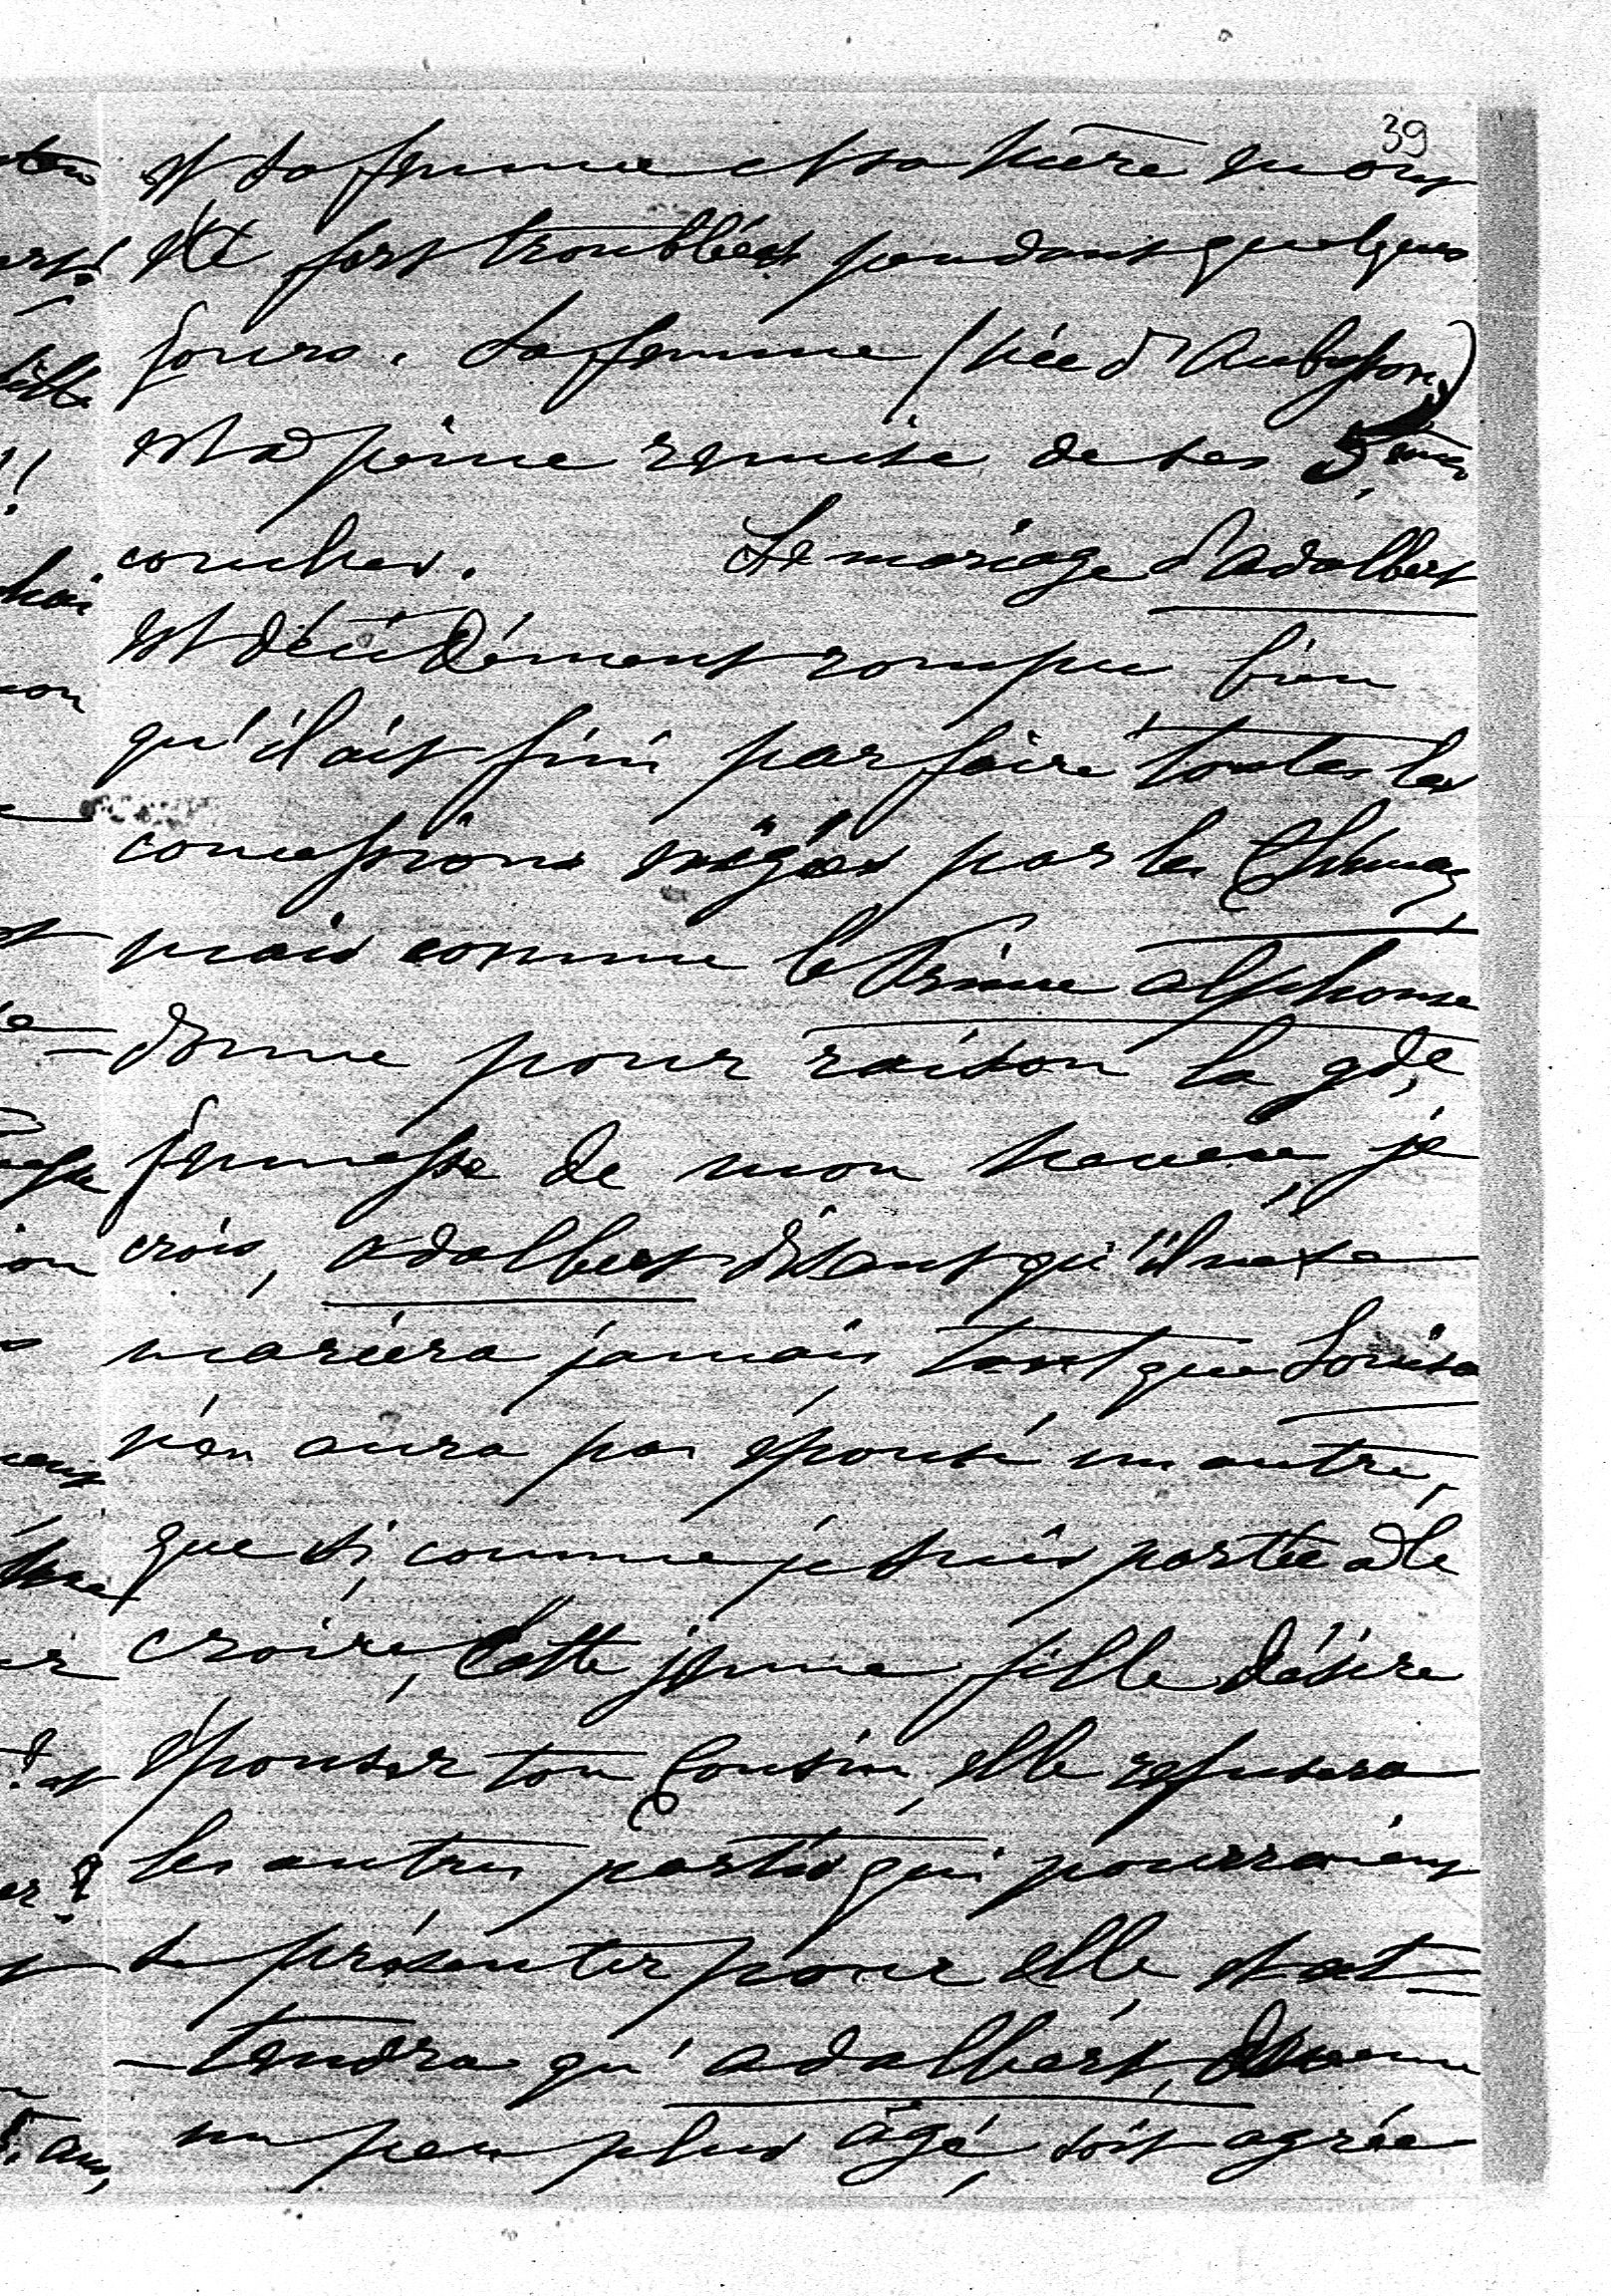 39
et sa femme et sa mère en ont
été fort troublées pendant quelques
jours. Sa femme (née d'Aubusson)
est à peine remise de ses 5èmes
couches. Le mariage d'Adalbert
est décidément rompu bien
qu'il ait fini par faire toutes les
concessions exigées par les Chimay
mais comme le Prince Alphonse
donne pour raison la gde
jeunesse de mon neveu, je
crois, Adalbert disant qu'il ne se
mariera jamais tant que Louise
n'en aura pas épousé un autre,
que si, comme je suis portée à le
croire, Cette jeune fille désire
épouser ton Cousin, elle refusera
les autres partis qui pourraient
se présenter pour elle et at=
=tendra qu'Adalbert, devenu
un peu plus âgé, soit agréé